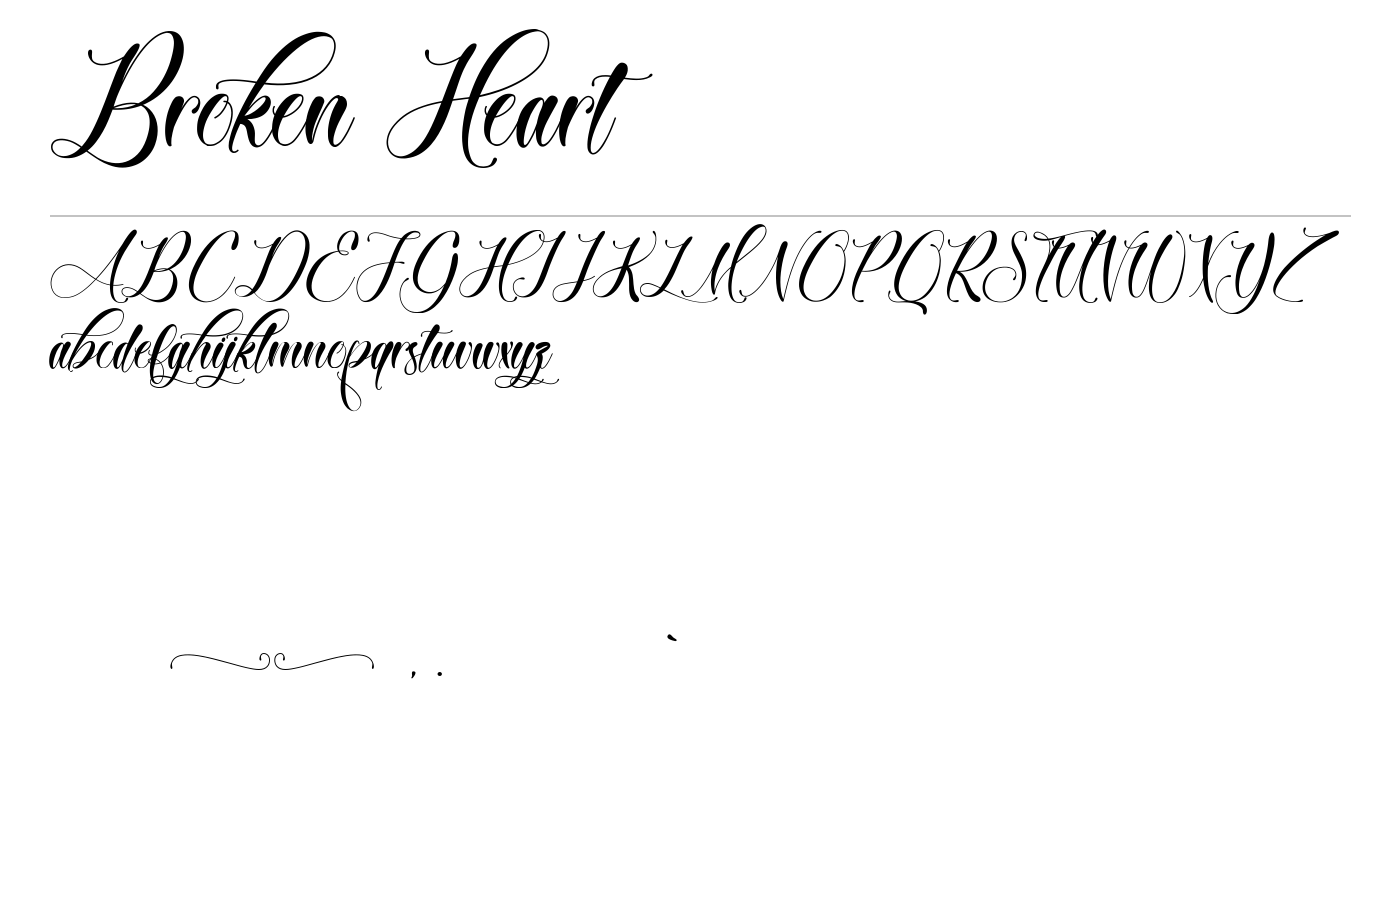 Broken Heart
ABCDEFGHIJKLMNOPQRSTUVWXYZ
abcdefghijklmnopqrstuvwxyz
, . `